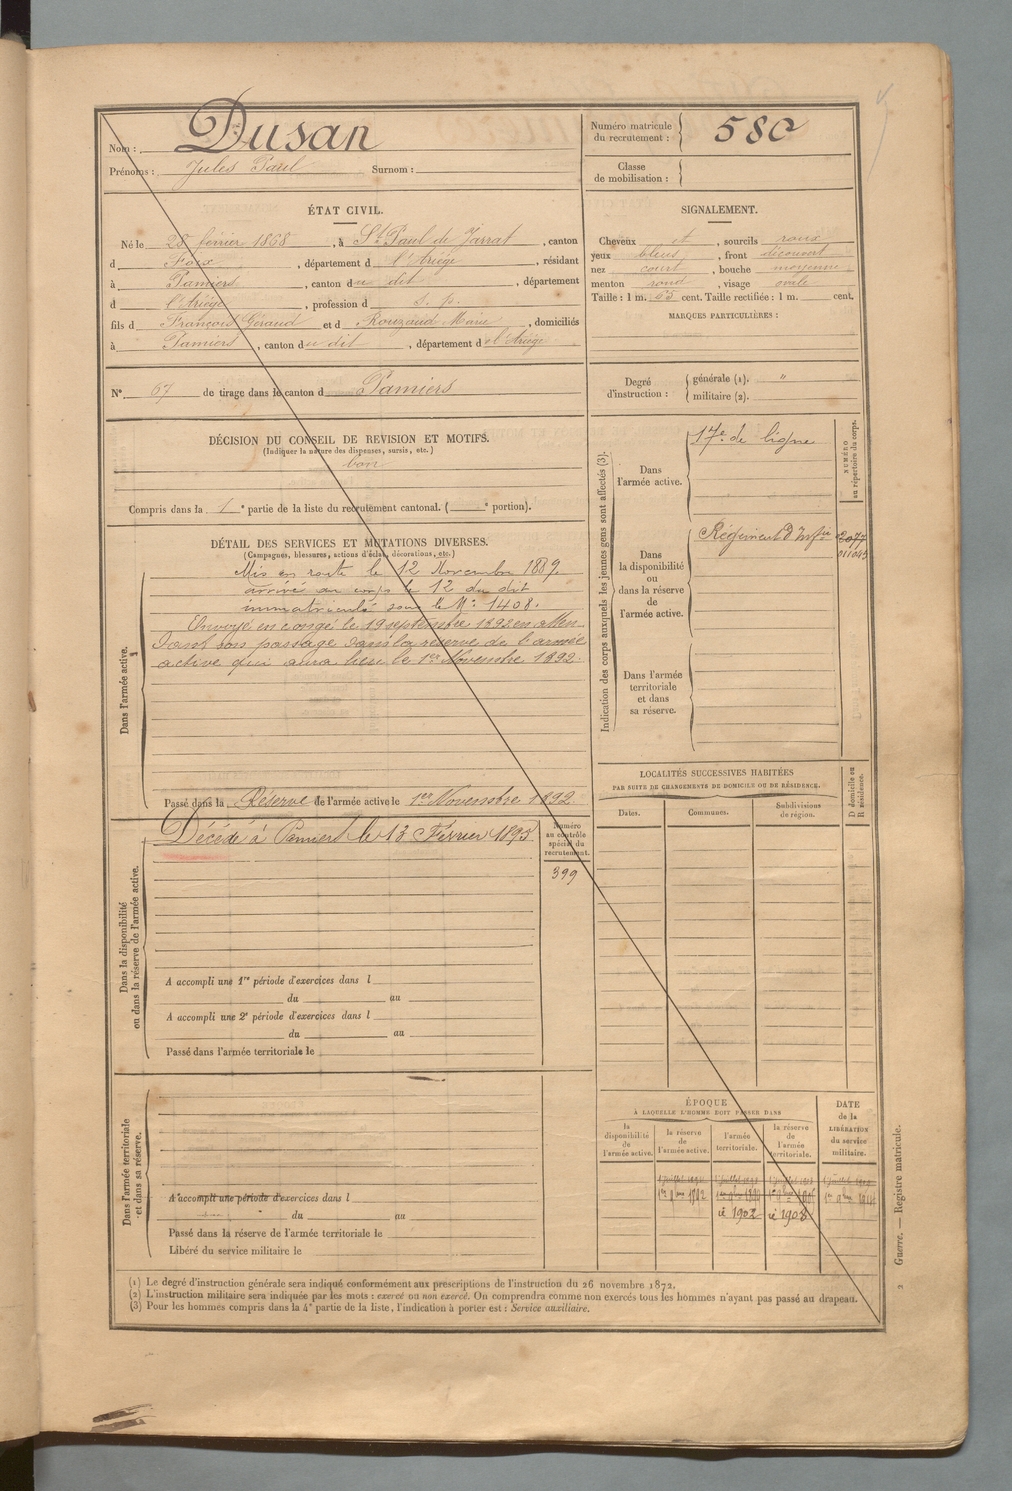 Nom : Dusan
Prénoms : Jules Paul Surnom :
Numéro matricule du recrutement : 580
Classe de mobilisation :
ÉTAT CIVIL.
Né le 28 février 1868, à St Paul de Jarrat, canton
d Foix, département d l'Ariége, résidant
à Pamiers, canton du dit, département
d l'Ariége, profession d s. p.
fils d François Géraud et d Rouzaud Marie, domiciliés
à Pamiers, canton du dit, département d el'Ariége
SIGNALEMENT.
Cheveux et, sourcils roux
yeux bleus, front découvert
nez court, bouche moyenne
menton rond, visage ovale
Taille : 1 m. 65 cent. Taille rectifiée : 1 m. cent.
MARQUES PARTICULIÈRES :
N° 67 de tirage dans le canton d Pamiers
Degré d'instruction : générale (1). "
militaire (2).
DÉCISION DU CONSEIL DE REVISION ET MOTIFS.
(Indiquer la nature des dispenses, sursis, etc.)
bon
Compris dans la 1 e partie de la liste du recrutement cantonal. ( e portion).
DÉTAIL DES SERVICES ET MUTATIONS DIVERSES.
(Campagnes, blessures, actions d'éclat, décorations, etc.)
Dans l'armée active.
Mis en route le 12 Novembre 1889.
arrivé au corps le 12 du dit
immatriculé sous le N° 1408.
Envoyé en congé le 19 septembre 1892 en atten-
dant son passage dans la réserve de l'armée
active qui aura lieu le 1er Novembre 1892.
Passé dans la Réserve de l'armée active le 1er Novembre 1892
Indication des corps auxquels les jeunes gens sont affectés (3).
NUMÉRO au répertoire du corps.
Dans l'armée active.
17e de ligne
Dans la disponibilité ou dans la réserve de l'armée active.
Régiment d'Infrie
Dans l'armée territoriale et dans sa réserve.
LOCALITÉS SUCCESSIVES HABITÉES
PAR SUITE DE CHANGEMENTS DE DOMICILE OU DE RÉSIDENCE.
Dates.
Communes.
Subdivisions de région.
D domicile ou R résidence.
Dans la disponibilité ou dans la réserve de l'armée active.
Décédé à Pamiers le 13 Février 1895
Numéro au contrôle spécial du recrutement.
399
A accompli une 1re période d'exercices dans l
du au
A accompli une 2e période d'exercices dans l
du au
Passé dans l'armée territoriale le
Dans l'armée territoriale et dans sa réserve.
A accompli une période d'exercices dans l
du au
Passé dans la réserve de l'armée territoriale le
Libéré du service militaire le
ÉPOQUE
À LAQUELLE L'HOMME DOIT PASSER DANS
la disponibilité de l'armée active.
la réserve de l'armée active.
l'armée territoriale.
la réserve de l'armée territoriale.
DATE de la LIBÉRATION du service militaire.
1er 9bre 1892
1902
1908
(1) Le degré d'instruction générale sera indiqué conformément aux prescriptions de l'instruction du 26 novembre 1872.
(2) L'instruction militaire sera indiquée par les mots : exercé ou non exercé. On comprendra comme non exercés tous les hommes n'ayant pas passé au drapeau.
(3) Pour les hommes compris dans la 4e partie de la liste, l'indication à porter est : Service auxiliaire.
2 Guerre. — Registre matricule.